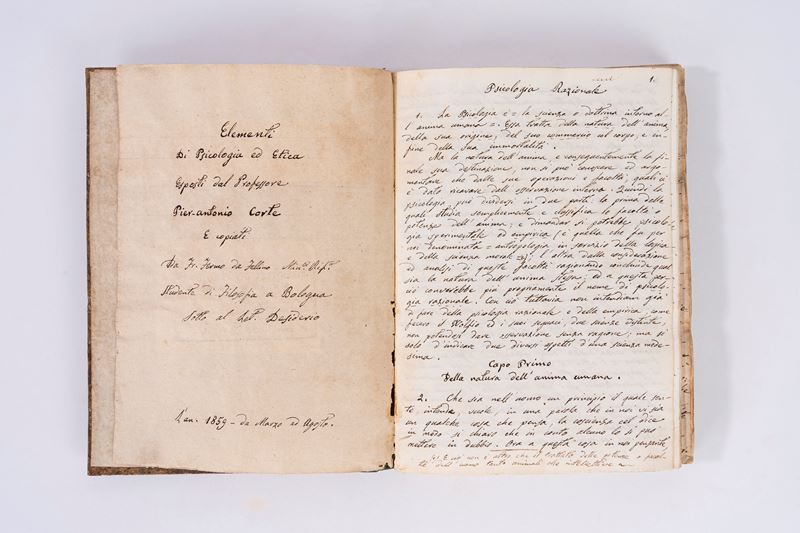 Elementi
Di Psicologia ed Etica
Esposti dal Professore
Pier-antonio Corte
E copiati
Da Fr. Fermo da Fellino Min.e Rif.o
Studente di Filosofia a Bologna
Sotto al Let. Desiderio
L'an. 1859 - da Marzo ad Agosto.
1.
Psicologia Razionale
1. La Psicologia è = la scienza o dottrina intorno al
l'anima umana =. Essa tratta della natura dell'anima,
della sua origine, del suo commercio col corpo, e in
fine della sua immortalità.
Ma la natura dell'anima, e conseguentemente la fi-
nale sua destinazione, non si può conoscere ed argo-
mentare che dalle sue operazioni e facoltà, quali ci
è dato ricavare dall'osservazione interna. Quindi la
psicologia può dividersi in due parti: la prima delle
quali studia semplicemente e classifica le facoltà o
potenze dell'anima; e dimandar si potrebbe psicolo-
gia sperimentale od empirica (è quella che fu per
noi denominata antropologia in servizio della logica
e della scienza morale); l'altra dalla considerazione
ed analisi di queste facoltà ragionando conchiude qual
sia la natura dell'anima stessa: ed a questa per-
ciò converrebbe più propriamente il nome di psicolo-
gia razionale. Con ciò tuttavia non intendiam già
di fare della psicologia razionale, e della empirica, come
fecero il Wolfio ed i suoi seguaci, due scienze distinte,
non potendosi dare osservazione senza ragione; ma si
solo d'indicare due diversi aspetti d'una scienza mede-
sima.
Capo Primo
Della natura dell'anima umana.
2. Che sia nell'uomo un principio il quale sen-
te, intende, vuole, in una parola che in noi vi sia
un qualche cosa che pensa, la coscienza cel dice
in modo sì chiaro che in conto alcuno lo si può
mettere in dubbio. Ora a questa cosa in noi pensante,
E ciò non è altro che il trattato delle potenze o facol-
tà dell'uomo tanto animali che intellettive